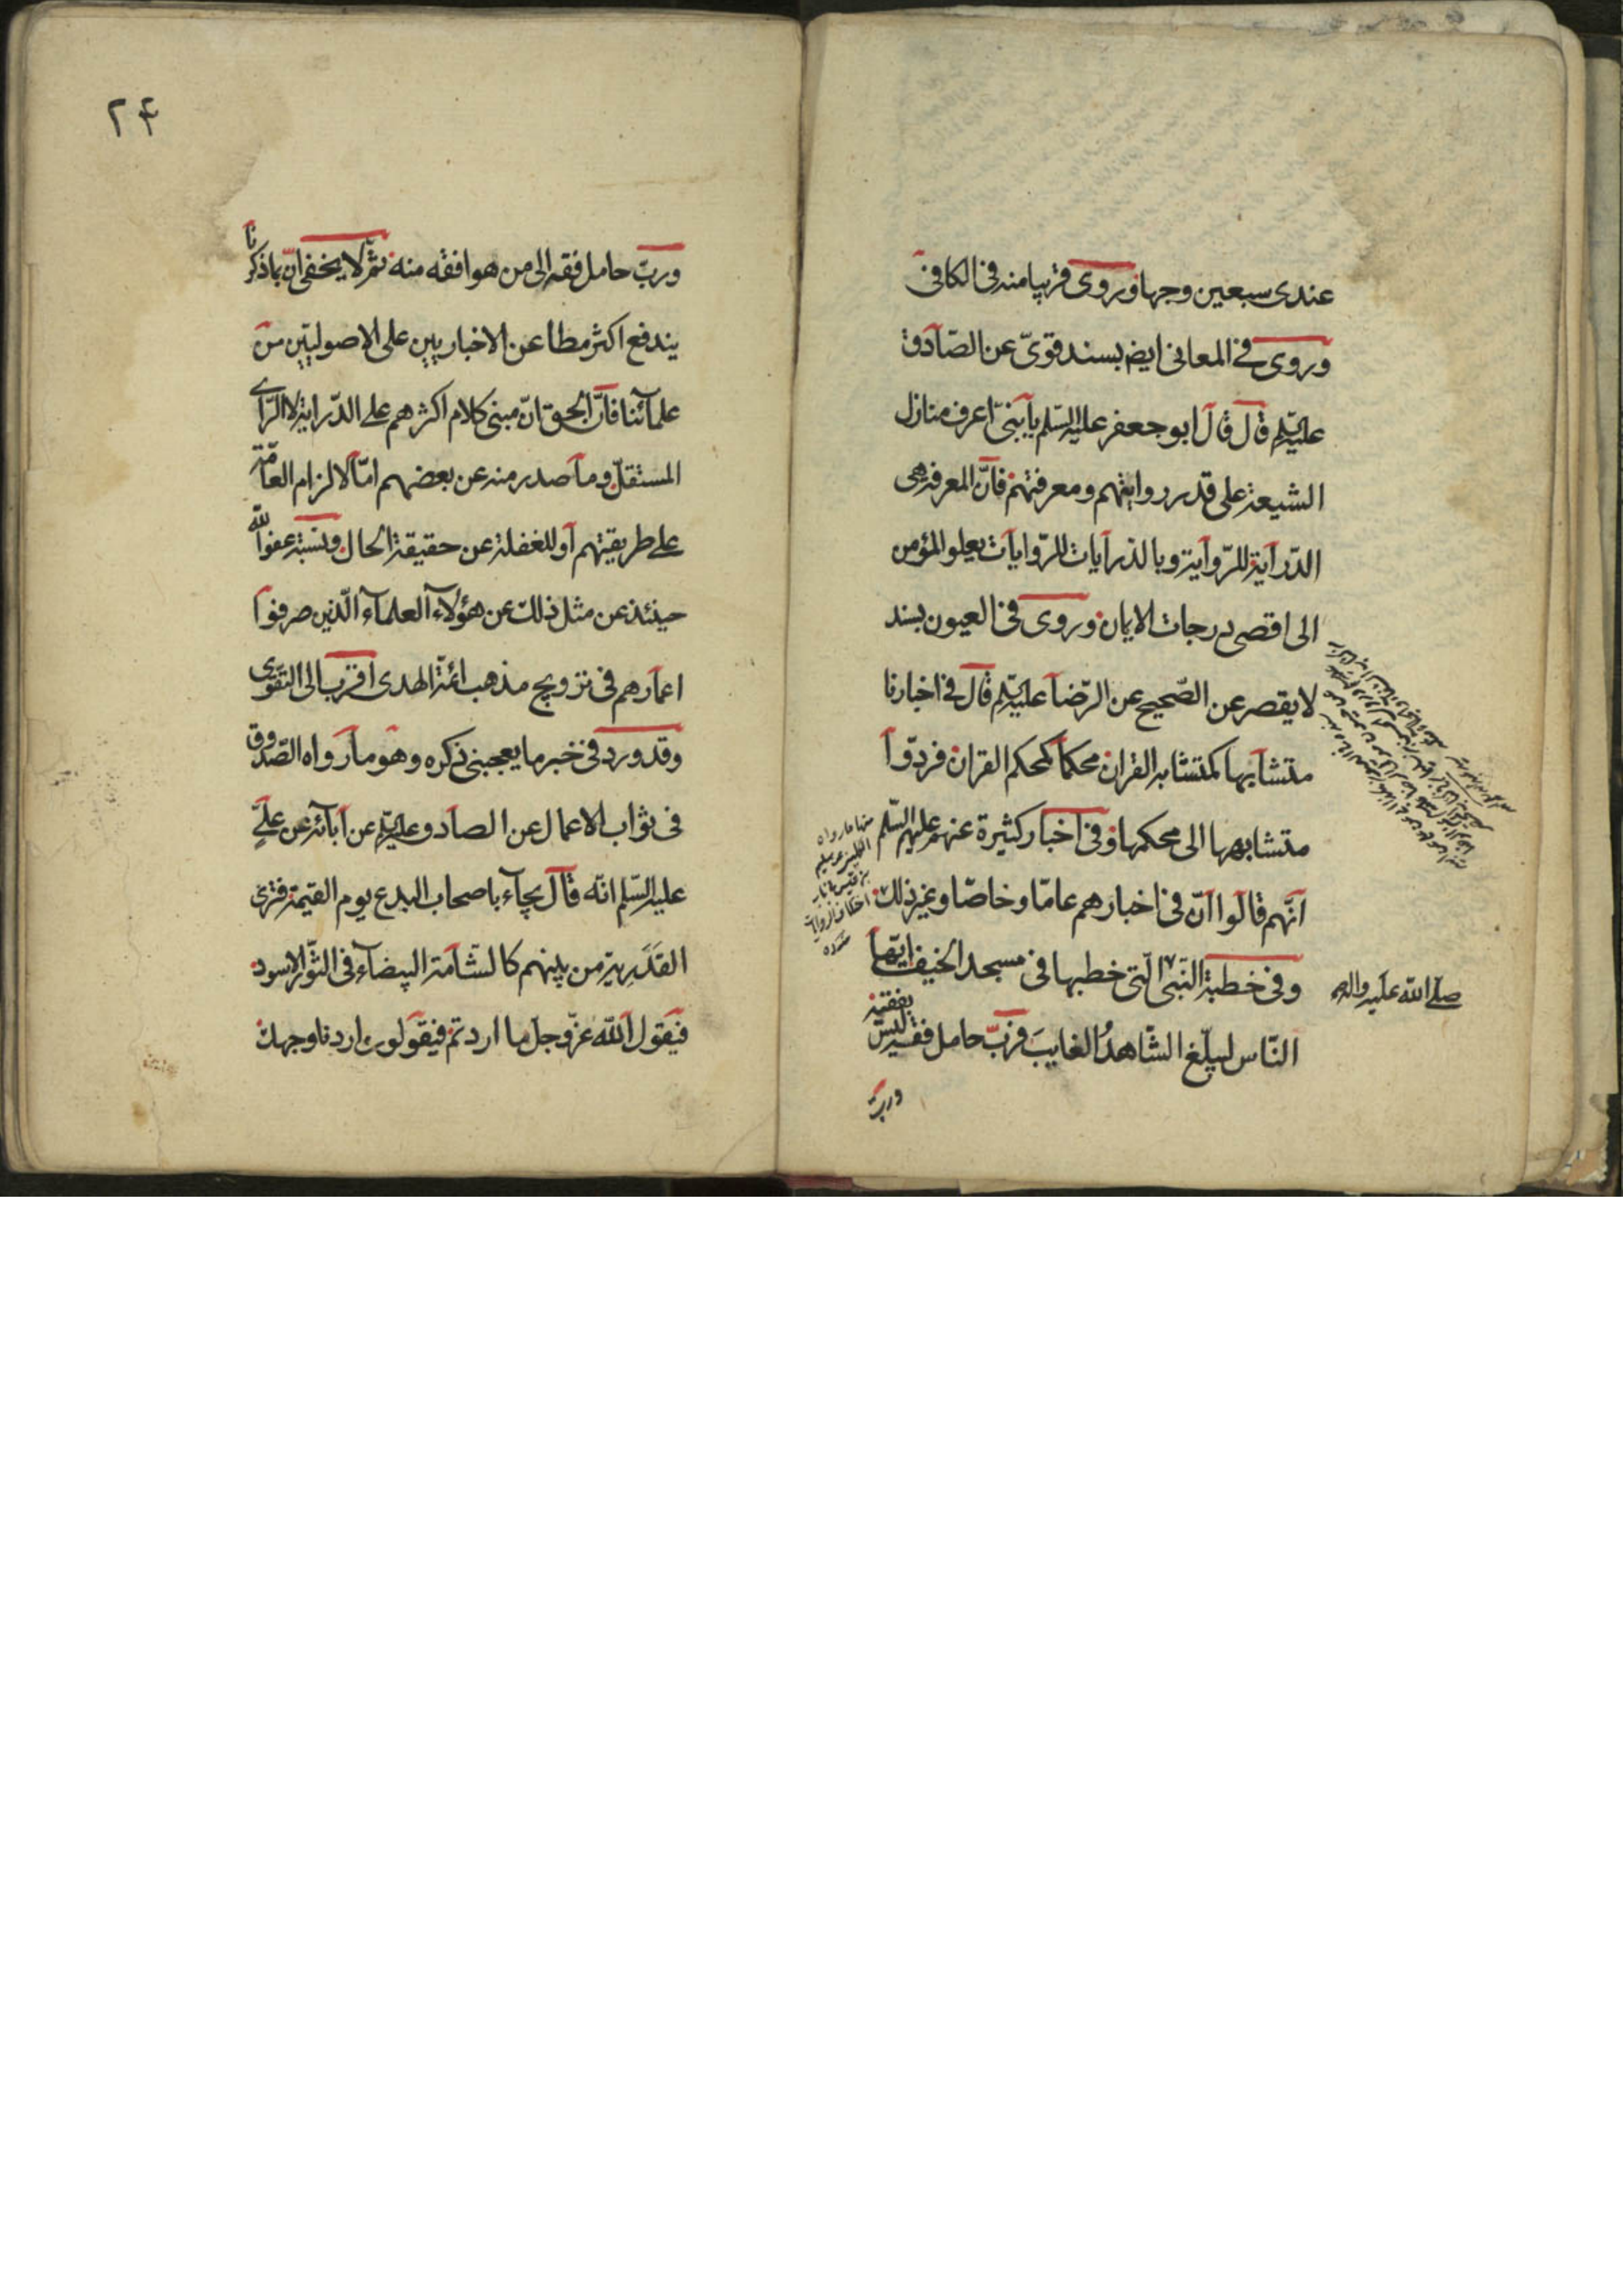 عندى سبعين وجها وروى قريبا منه فى الكافى
وروى فى المعانى ايض بسند قوىّ عن الصّادق
عليه السّلم قال قال ابو جعفر عليه السّلم يا بنىّ اعرف منازل
الشيعة على قدر روايتهم ومعرفتهم فانّ المعرفة هى
الدّراية للرّواية وبالدّرايات للرّوايات يعلو المؤمن
الى اقصى درجات الايمان وروى فى العيون بسند
لا يقصر عن الصّحيح عن الرّضا عليه السّلم قال فى اخبارنا
متشابها كمتشابه القران محكما كمحكم القران فردّوا
متشابهها الى محكمها وفى اخبار كثيرة عنهم عليهم السّلم
انّهم قالوا انّ فى اخبارهم عامّا وخاصّا وغير ذلك
وفى خطبة النّبى الّتى خطبها فى مسجد الخيف ايّها
صلّى الله عليه واله
النّاس ليبلّغ الشّاهدُ الغايبَ فربّ حامل فقه ليس
بفقيه
وربّ
منها ما رواه
سليم
بن قيس
٢۴
وربّ حامل فقه الى من هو افقه منه ثمّ لا يخفى انّ بما ذكرنا
يندفع اكثر مطاعن الاخباريين على الاصوليّين من
علمآئنا فانّ الحق انّ مبنى كلام اكثرهم على الدّراية لا الرّاى
المستقلّ وما صدر منه عن بعضهم امّا لالزام العامّة
على طريقتهم او للغفلة عن حقيقة الحال ونسبة عفو الله
حينئذ عن مثل ذلك عن هؤلآء العلمآء الّذين صرفوا
اعمارهم فى ترويج مذهب ائمّة الهدى اقرب الى التقوى
وقد ورد فى خبر ما يعجبنى ذكره وهو ما رواه الصّدوق
فى ثواب الاعمال عن الصادق عليه السّلم عن آبآئه عن علىّ
عليه السّلم انّه قال يجآء باصحاب البدع يوم القيمة فترى
القَدَرِيّة من بينهم كالشّامة البيضآء فى الثّور الاسود
فيقول الله عزّ وجل ما اردتم فيقولون اردنا وجهك